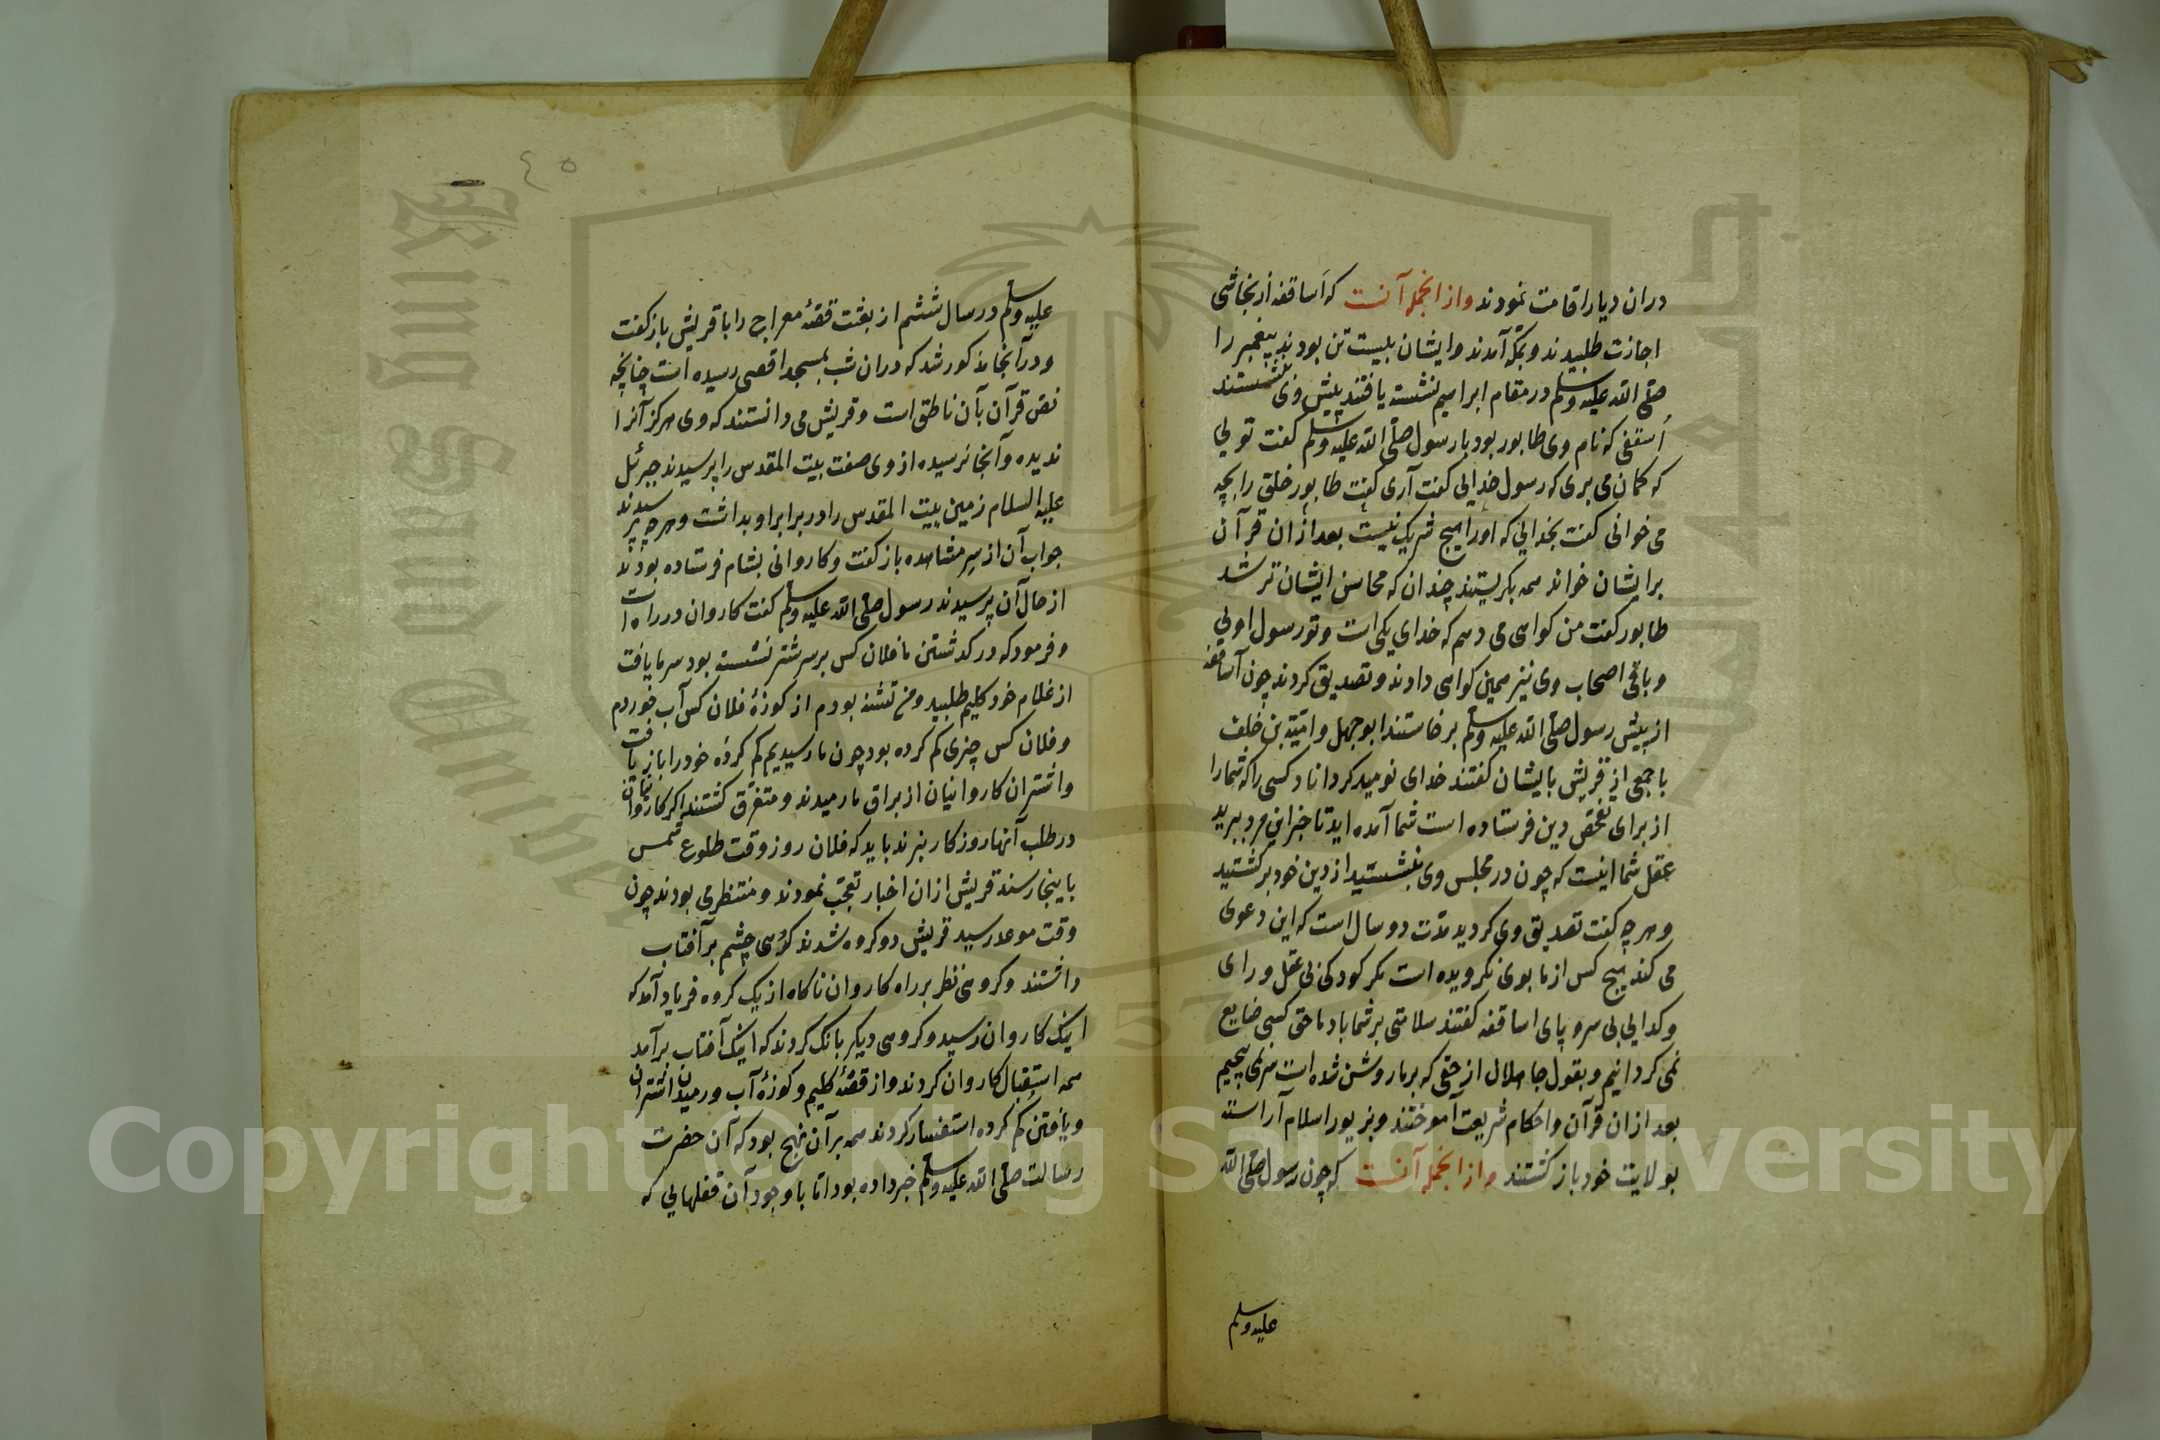 دران دیار اقامت نمودند واز انجمله آنست که اساقفه از نجاشی
اجازت طلبیدند و بمکه آمدند وایشان بیست تن بودند پیغمبر را
صلی الله علیه وسلم در مقام ابراهیم نشسته یافتند پیش وی بنشستند
اسقفی که نام وی طابور بود با رسول صلی الله علیه وسلم کفت توئی
که کمان می بری که رسول خدایی کفت آری کفت طابور خلق را بچه
می خوانی کفت بخدایی که اورا هیچ شریک نیست بعد ازان قرآن
برایشان خواند همه بکریستند چندان که محاسن ایشان تر شد
طابور کفت من کواهی می دهم که خدای یکی است و تو رسول اویی
و باقی اصحاب وی نیز همین کواهی دادند و تصدیق کردند چون اساقفه
از پیش رسول صلی الله علیه وسلم برخاستند ابوجهل وامیة بن خلف
با جمعی از قریش بایشان کفتند خدای نومید کرداناد کسی را که شمارا
از برای تفحص دین فرستاده است شما آمده اید تا خبر این مرد ببرید
عقل شما اینست که چون در مجلس وی بنشستید از دین خود برکشتید
و هرچه کفت تصدیق وی کردید مدت دو سال است که این دعوی
می کند هیچ کس از ما بوی نکرویده است مکر کودکی بی عقل و رای
و کدایی بی سر و پای اساقفه کفتند سلامتی بر شما باد ما حق کسی ضایع
نمی کردانیم و بقول جاهلان از حقی که بر ما روشن شده است سر نمی پیچیم
بعد ازان قرآن واحکام شریعت آموختند و بزیور اسلام آراسته
بولایت خود باز کشتند واز انجمله آنست که چون رسول صلی الله
علیه وسلم
٤٥
علیه وسلم در سال ششم از بعثت قصهٔ معراج را با قریش باز کفت
و در آنجا مذکور شد که دران شب بمسجد اقصی رسیده است چنانچه
نص قرآن بآن ناطق است و قریش می دانستند که وی هرکز آنرا
ندیده وآنجا نرسیده از وی صفت بیت المقدس را پرسیدند جبرئل
علیه السلام زمین بیت المقدس را در برابر او بداشت و هرچه پرسیدند
جواب آن از سر مشاهده باز کفت و کاروانی بشام فرستاده بودند
از حال آن پرسیدند رسول صلی الله علیه وسلم کفت کاروان در راه است
و فرمود که در کدشتن ما فلان کس بر سر شتر نشسته بود سرما یافت
از غلام خود کلیم طلبید و من تشنه بودم از کوزهٔ فلان کس آب خوردم
و فلان کس چیزی کم کرده بود چون ما رسیدیم کم کردهٔ خود را باز یافت
واشتران کاروانیان از براق ما رمیدند و متفرق کشتند اکر کاروانیان
در طلب آنها روزکار نبرند باید که فلان روز وقت طلوع شمس
باینجا رسند قریش ازان اخبار تعجب نمودند و منتظر می بودند چون
وقت موعد رسید قریش دو کروه شدند کروهی چشم بر آفتاب
داشتند و کروهی نظر بر راه کاروان ناکاه از یک کروه فریاد آمد که
اینک کاروان رسید و کروهی دیکر بانک کردند که اینک آفتاب برآمد
همه استقبال کاروان کردند واز قصهٔ کلیم و کوزهٔ آب و رمیدن اشتران
و یافتن کم کرده استفسار کردند همه بر آن نهج بود که آن حضرت
رسالت صلی الله علیه وسلم خبر داده بود اما با وجود آن قفلهایی که
Copyright © King Saud University
King Saud University
1957